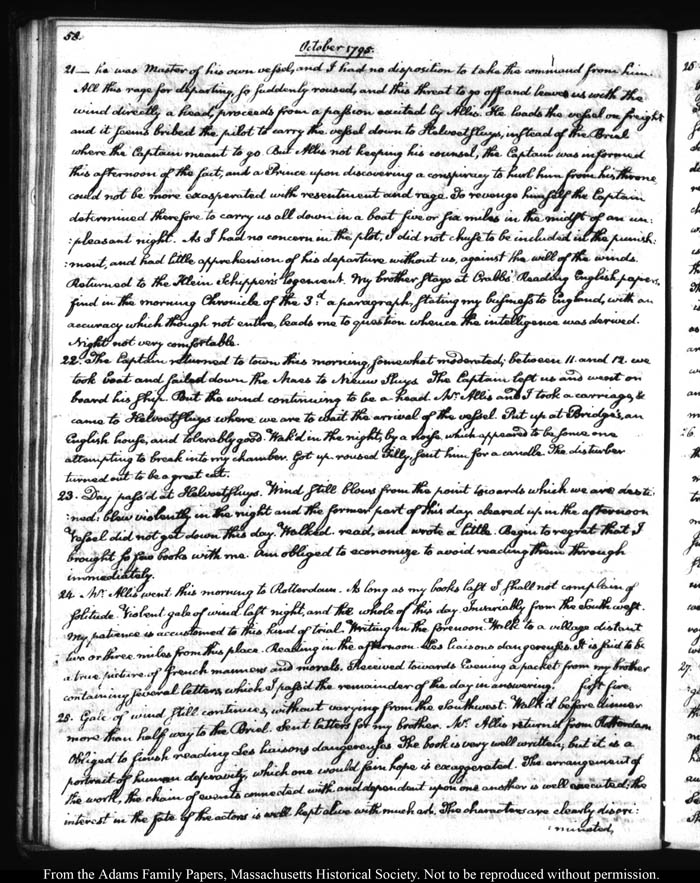 58.
October 1795.
21 — he was Master of his own vessel, and I had no disposition to take the command from him.
All this rage for departing, so suddenly roused, and this threat to go off and leave us with the
wind directly a head, proceeds from a passion excited by Allis. He loads the vessel on freight
and it seems bribed the pilot to carry the vessel down to Helvoetsluys, instead of the Briel
where the Captain meant to go. But Allis not keeping his counsel, the Captain was informed
this afternoon of the fact, and a Prince upon discovering a conspiracy to hurl him from his throne,
could not be more exasperated with resentment and rage. To revenge himself the Captain
determined therefore to carry us all down in a boat five or six miles in the midst of an un:
:pleasant night. As I had no concern in the plot, I did not chuse to be included in the punish:
:ment, and had little apprehension of his departure without us, against the will of the winds.
Returned to the Klein Schippers logement. My brother stays at Crabb's. Reading English papers,
find in the morning Chronicle of the 3.d a paragraph, stating my business to England, with an
accuracy which though not entire, leads me to question whence the intelligence was derived.
Night not very comfortable.
22. The Captain returned to town this morning, somewhat moderated; between 11. and 12. we
took boat and sailed down the Maes to Nieuw Sluys. The Captain left us and went on
board his ship. But the wind continuing to be a head. Mr. Allis and I took a carriage, &
came to Helvoetsluys where we are to wait the arrival of the vessel. Put up at Bridge's, an
English house, and tolerably good. Wak'd in the night, by a noise which appeared to be some one
attempting to break into my chamber. Got up. roused Tilly, sent him for a candle. The disturber
turned out to be a great cat.
23. Day pass'd at Helvoetsluys. Wind still blows from the point towards which we are desti:
:ned; blew violently in the night and the former part of this day. cleared up in the afternoon
Vessel did not get down this day. Walked. read, and wrote a little. Begin to regret that I
brought so few books with me. Am obliged to economize to avoid reading them through
immediately.
24. Mr. Allis went this morning to Rotterdam. As long as my books last I shall not complain of
solitude. Violent gale of wind last night, and the whole of this day. Invariably from the South west.
My patience is accustomed to this kind of trial. Writing in the forenoon. Walk to a village distant
two or three miles from this place. Reading in the afternoon. Les liaisons dangereuses. It is said to be
a true picture of french manners and morals. Received towards Evening a packet from my brother
containing several letters, which I pass'd the remainder of the day in answering. first fire.
25. Gale of wind still continues, without varying from the Southwest. Walk'd before dinner
more than half way to the Briel. Sent letters for my brother. Mr. Allis return'd from Rotterdam
Obliged to finish reading Les liaisons dangereuses The book is very well written; but it is a
portrait of human depravity, which one would fain hope is exaggerated. The arrangement of
the work, the chain of events connected with and dependent upon one another is well executed; the
interest in the fate of the actors is well kept alive with much art. The characters are clearly discri:
:minated,
From the Adams Family Papers, Massachusetts Historical Society. Not to be reproduced without permission.